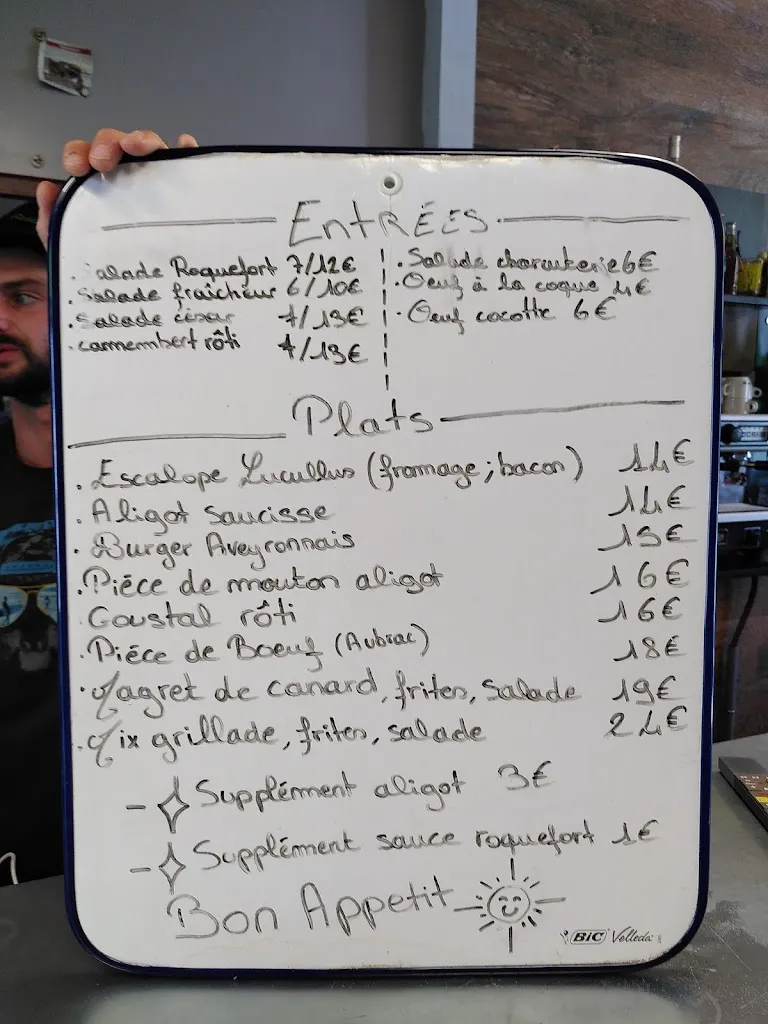 ENTRÉES
. Salade Roquefort 7/12€
. Salade fraîcheur 6/10€
. Salade césar 7/13€
. camembert rôti 7/13€
. Salade charcuterie 6€
. Oeuf à la coque 4€
. Oeuf cocotte 6€
Plats
. Escalope Lucullus (fromage; bacon) 14€
. Aligot saucisse 14€
. Burger Aveyronnais 15€
. Piéce de mouton aligot 16€
. Coustal rôti 16€
. Piéce de Boeuf (Aubrac) 18€
. Magret de canard, frites, salade 19€
. Mix grillade, frites, salade 24€
- Supplément aligot 3€
- Supplément sauce roquefort 1€
Bon Appetit
BIC Velleda